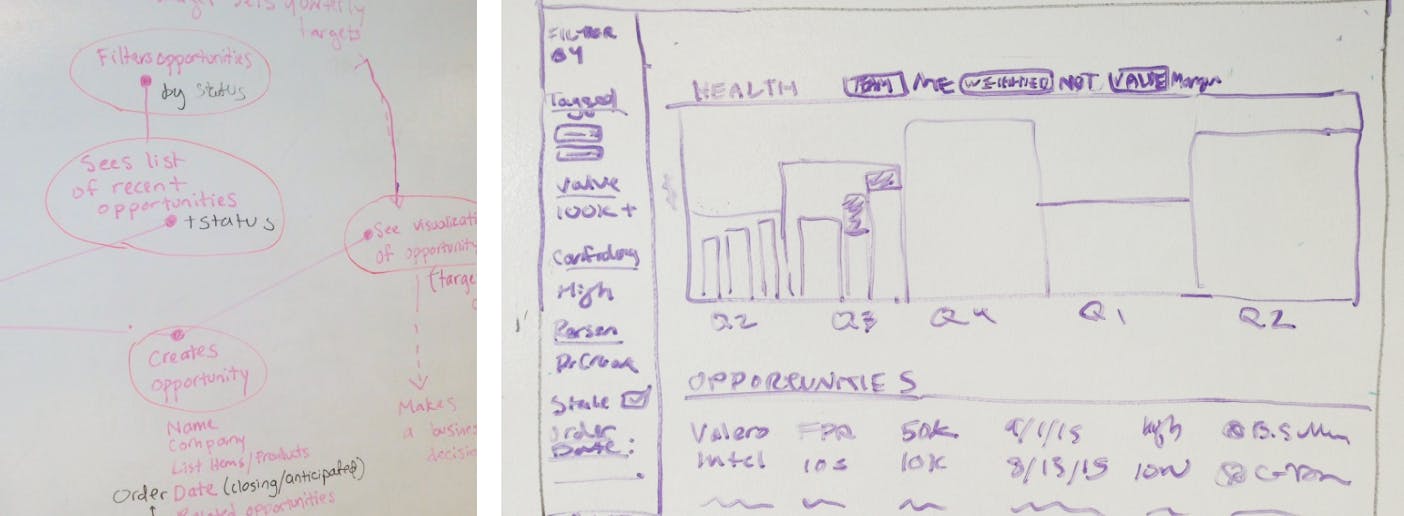 targets
Filters opportunities
by status
Sees list
of recent
opportunities
+status
See visualizati
of opportunity
(targe
Creates
opportunity
Makes
a busine
decisio
Name
Company
List Items/Products
Order Date (closing/anticipated)
Related opportunities
FILTER
BY
Tagged
Value
100K+
High
Person
Stale
Order
Date:
HEALTH TEAM ME WEIGHTED NOT VALUE Margin
Q2 Q3 Q4 Q1 Q2
OPPORTUNITIES
Valero 50K 9/1/15 high
Intel 10S 10K 8/15/15 low